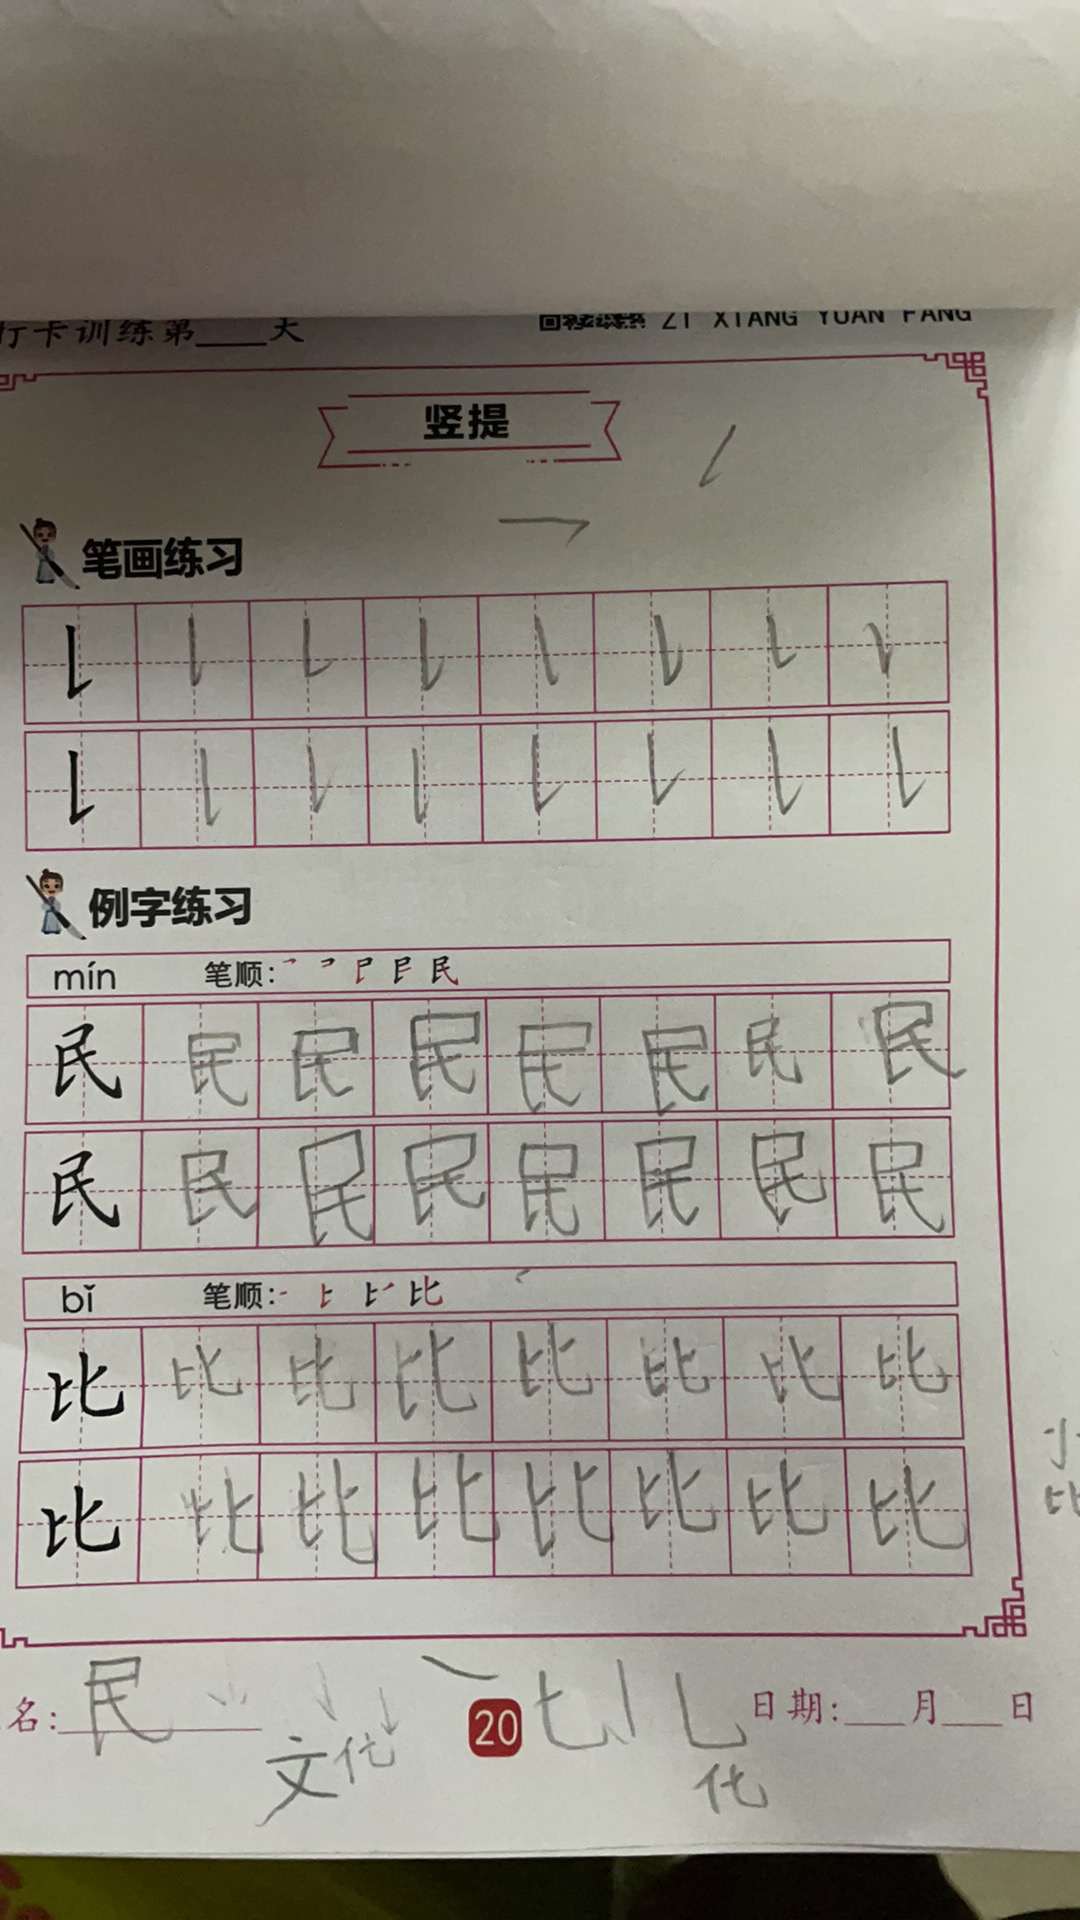 打卡训练第____天
ZI XIANG YUAN FANG
竖提
笔画练习
例字练习
mín 笔顺:
民 民 民 民 民 民 民 民
民 民 民 民 民 民 民 民
bǐ 笔顺:
比 比 比 比 比 比 比 比
比 比 比 比 比 比 比 比
小
比
名: 民 20 七 日期:___月___日
文化
化